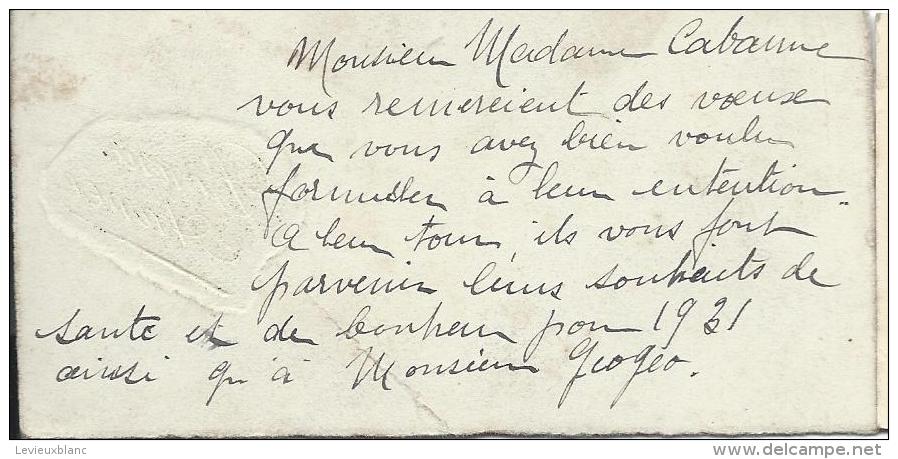 Monsieur Madame Cabanne
vous remercient des vœux
que vous avez bien voulu
formuler à leur entention.
A leur tour, ils vous font
parvenir leurs souhaits de
santé et de bonheur pour 1931
ainsi qu'à Monsieur Geogeo.
Levieuxblanc
www.delcampe.net